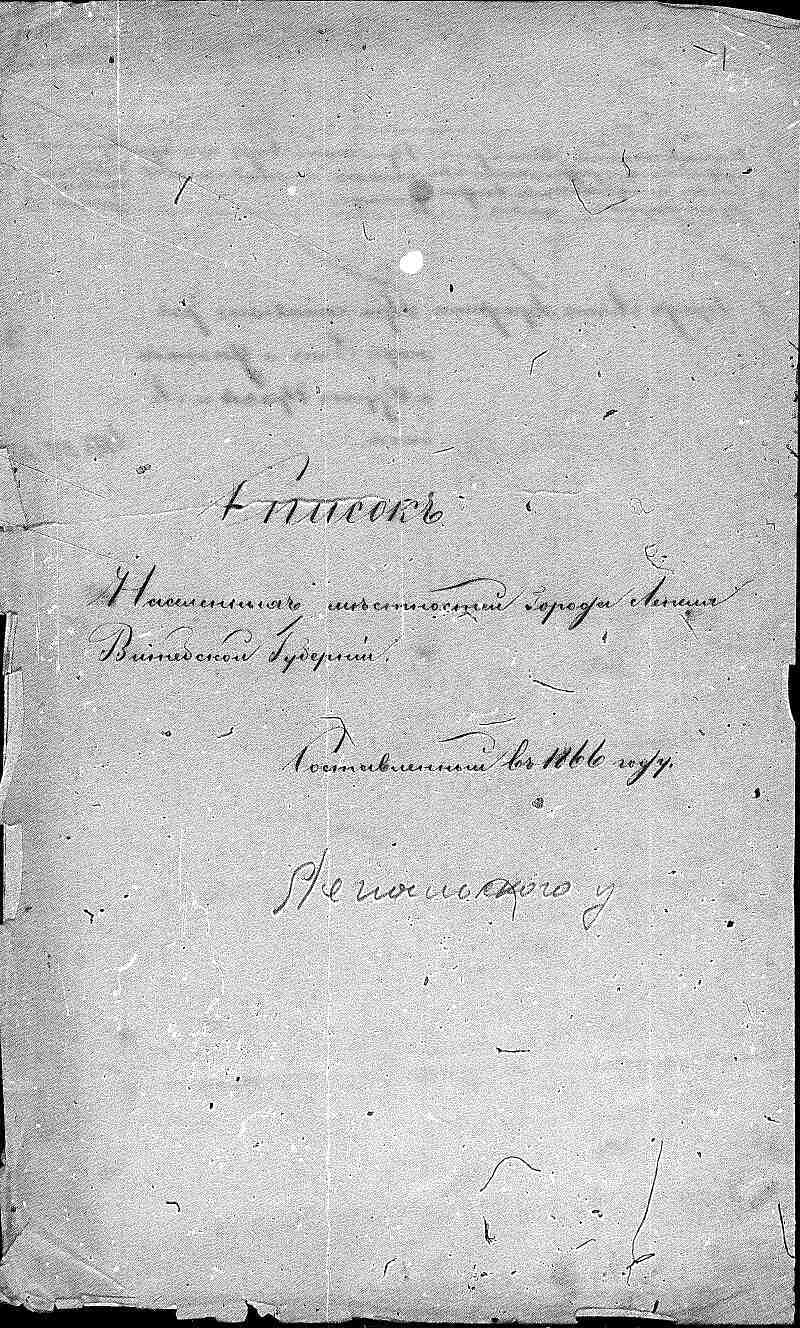 Списокъ
Населенныхъ мѣстностей Города Лепеля
Витебской Губерніи.
Составленный въ 1866 году.
Лепельского у